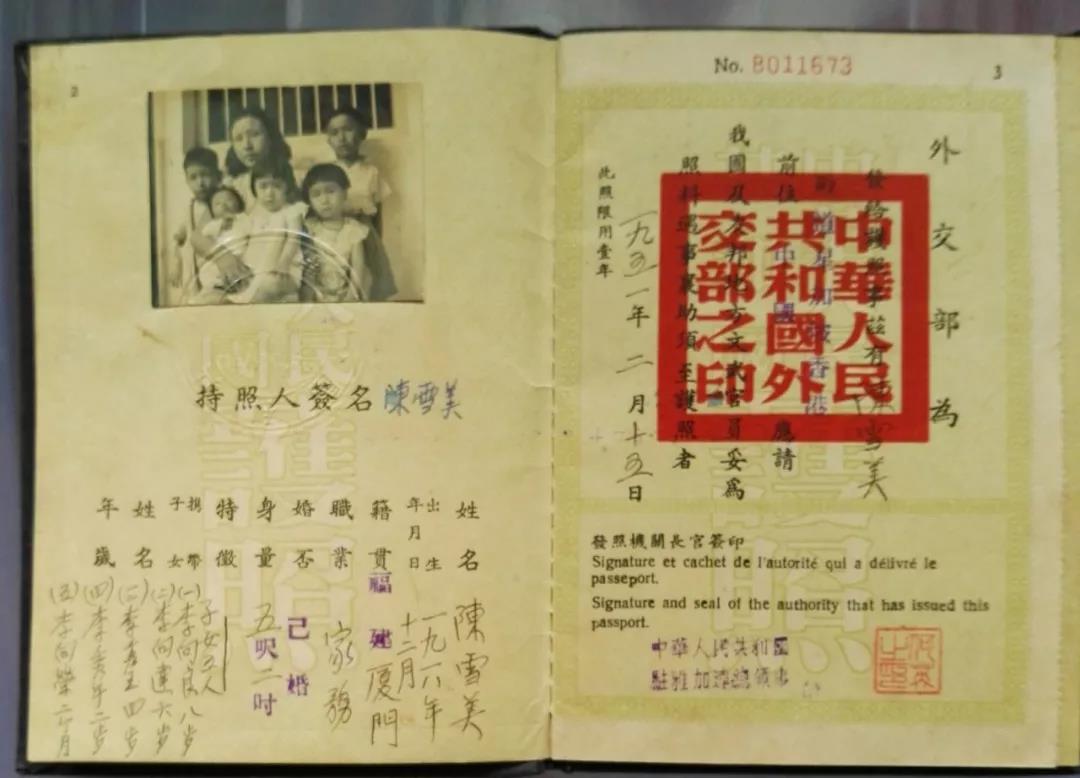 2
持照人簽名 陳雪美
姓名 陳雪美
出生年月日 一九一六年十二月
籍貫 福建厦門
職業 家務
婚否 己婚
身量 五呎二吋
特徵
携帶子女 子女五人
姓名
年歲
(一)李向良 八岁
(二)李向建 六岁
李 四岁
(四)李秀年 二岁
(五)李向榮 二个月
No. 8011673
3
外交部為
發給護照事茲有陳雪美
經星加坡香港
前往中國 應請
我國及友邦地方文武官員妥為
照料遇事襄助須至護照者
一九五一年二月十五日
此照限用壹年
中華人民
共和國外
交部之印
發照機關長官簽印
Signature et cachet de l'autorité qui a délivré le
passeport.
Signature and seal of the authority that has issued this
passport.
中華人民共和國
駐雅加達總領事